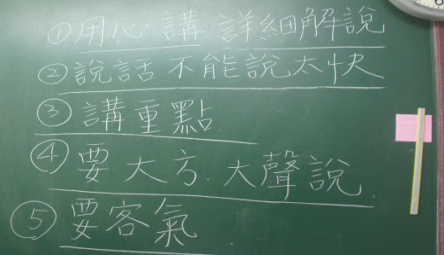 ①用心講 詳細解說
②說話 不能說太快
③講重點
④要大方.大聲說
⑤要客氣